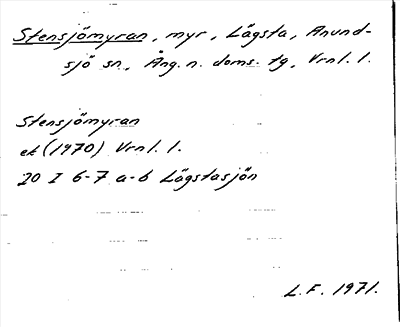 Stensjömyran, myr, Lägsta, Anund-
sjö sn., Ång. n. doms. tg, Vrnl. l.
Stensjömyran
ek (1970) Vrnl. l.
20 I 6-7 a-b Lägstasjön
L.F. 1971.